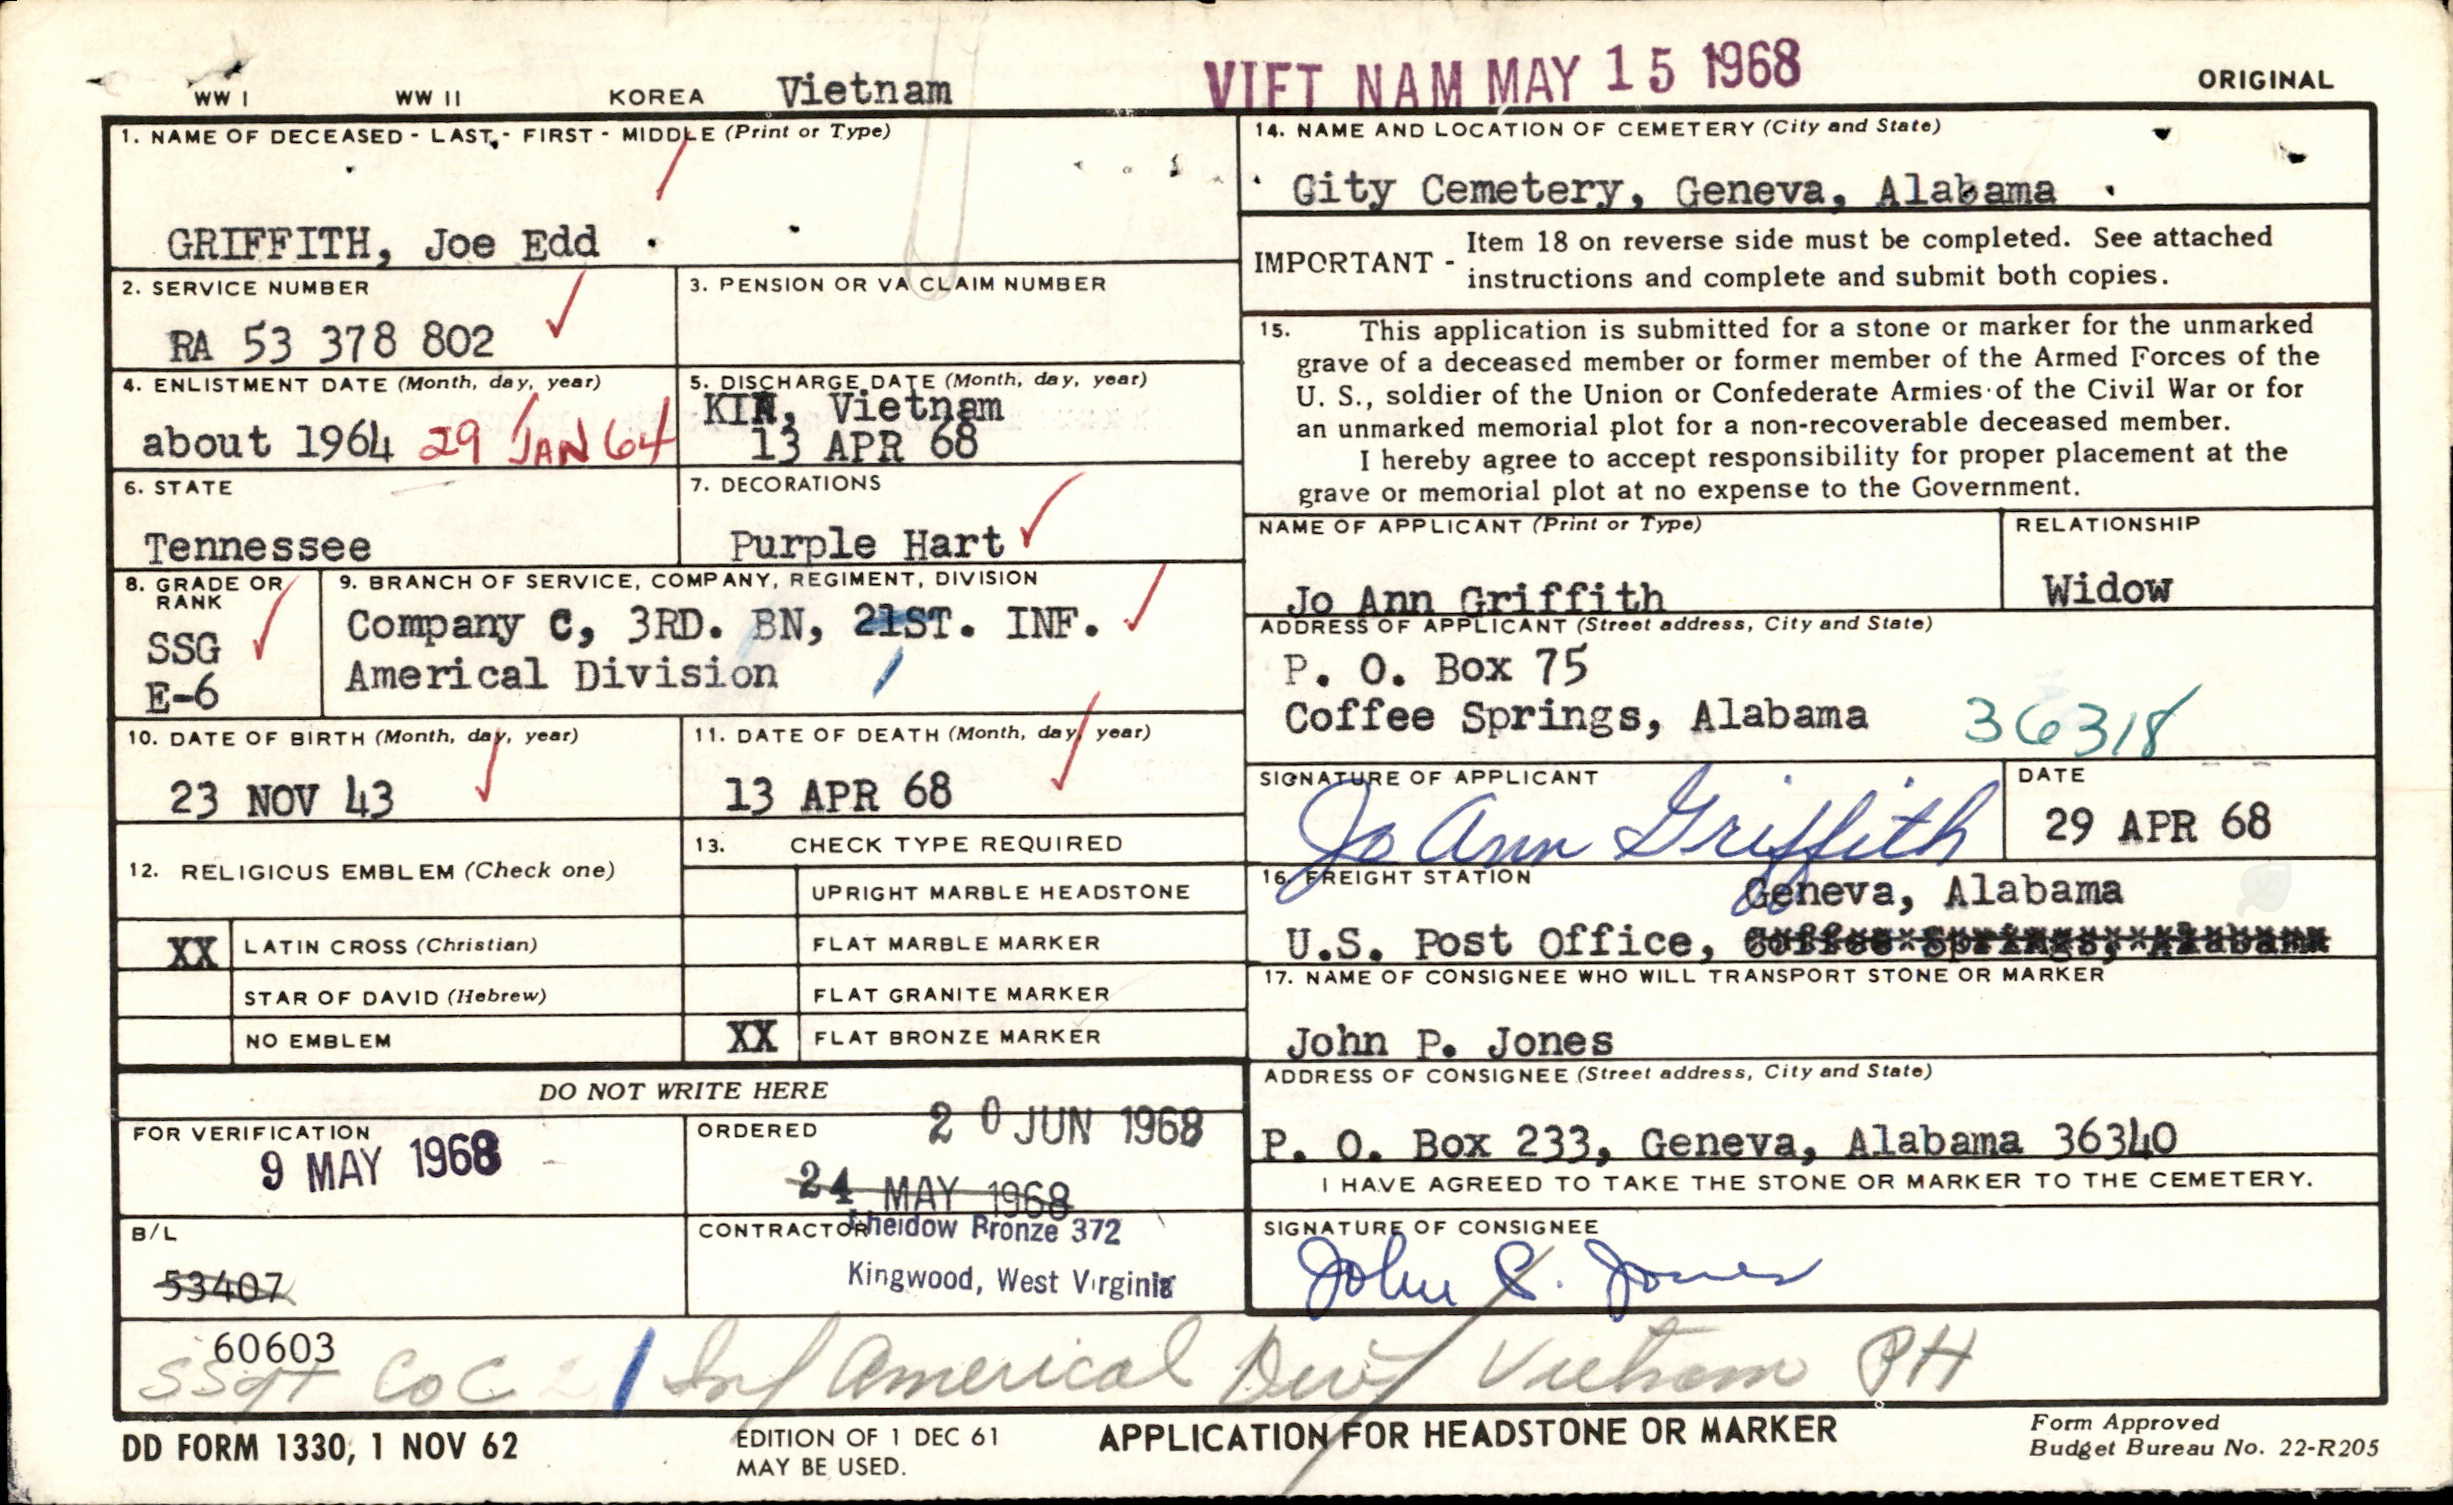 WW I WW II KOREA Vietnam VIET NAM MAY 15 1968 ORIGINAL
1. NAME OF DECEASED - LAST - FIRST - MIDDLE (Print or Type)
GRIFFITH, Joe Edd
2. SERVICE NUMBER
RA 53 378 802
3. PENSION OR VA CLAIM NUMBER
4. ENLISTMENT DATE (Month, day, year)
about 1964 29 JAN 64
5. DISCHARGE DATE (Month, day, year)
Vietnam
13 APR 68
6. STATE
Tennessee
7. DECORATIONS
Purple Hart
8. GRADE OR
RANK
SSG
E-6
9. BRANCH OF SERVICE, COMPANY, REGIMENT, DIVISION
Company C, 3RD. BN, 21ST. INF.
Americal Division
10. DATE OF BIRTH (Month, day, year)
23 NOV 43
11. DATE OF DEATH (Month, day, year)
13 APR 68
12. RELIGIOUS EMBLEM (Check one)
XX LATIN CROSS (Christian)
STAR OF DAVID (Hebrew)
NO EMBLEM
13. CHECK TYPE REQUIRED
UPRIGHT MARBLE HEADSTONE
FLAT MARBLE MARKER
FLAT GRANITE MARKER
XX FLAT BRONZE MARKER
DO NOT WRITE HERE
FOR VERIFICATION
9 MAY 1968
ORDERED 20 JUN 1968
24 MAY 1968
B/L
53407
CONTRACTOR Bronze 372
Kingwood, West Virginia
14. NAME AND LOCATION OF CEMETERY (City and State)
City Cemetery, Geneva, Alabama
IMPORTANT - Item 18 on reverse side must be completed. See attached
instructions and complete and submit both copies.
15. This application is submitted for a stone or marker for the unmarked
grave of a deceased member or former member of the Armed Forces of the
U. S., soldier of the Union or Confederate Armies of the Civil War or for
an unmarked memorial plot for a non-recoverable deceased member.
I hereby agree to accept responsibility for proper placement at the
grave or memorial plot at no expense to the Government.
NAME OF APPLICANT (Print or Type)
Jo Ann Griffith
RELATIONSHIP
Widow
ADDRESS OF APPLICANT (Street address, City and State)
P. O. Box 75
Coffee Springs, Alabama 36318
SIGNATURE OF APPLICANT
Jo Ann Griffith
DATE
29 APR 68
16. FREIGHT STATION
Geneva, Alabama
U.S. Post Office, Coffee Springs, Alabama
17. NAME OF CONSIGNEE WHO WILL TRANSPORT STONE OR MARKER
John P. Jones
ADDRESS OF CONSIGNEE (Street address, City and State)
P. O. Box 233, Geneva, Alabama 36340
I HAVE AGREED TO TAKE THE STONE OR MARKER TO THE CEMETERY.
SIGNATURE OF CONSIGNEE
John P. Jones
60603
SSgt Co C 21 Inf Americal Div Vietnam PH
DD FORM 1330, 1 NOV 62
EDITION OF 1 DEC 61
MAY BE USED.
APPLICATION FOR HEADSTONE OR MARKER
Form Approved
Budget Bureau No. 22-R205